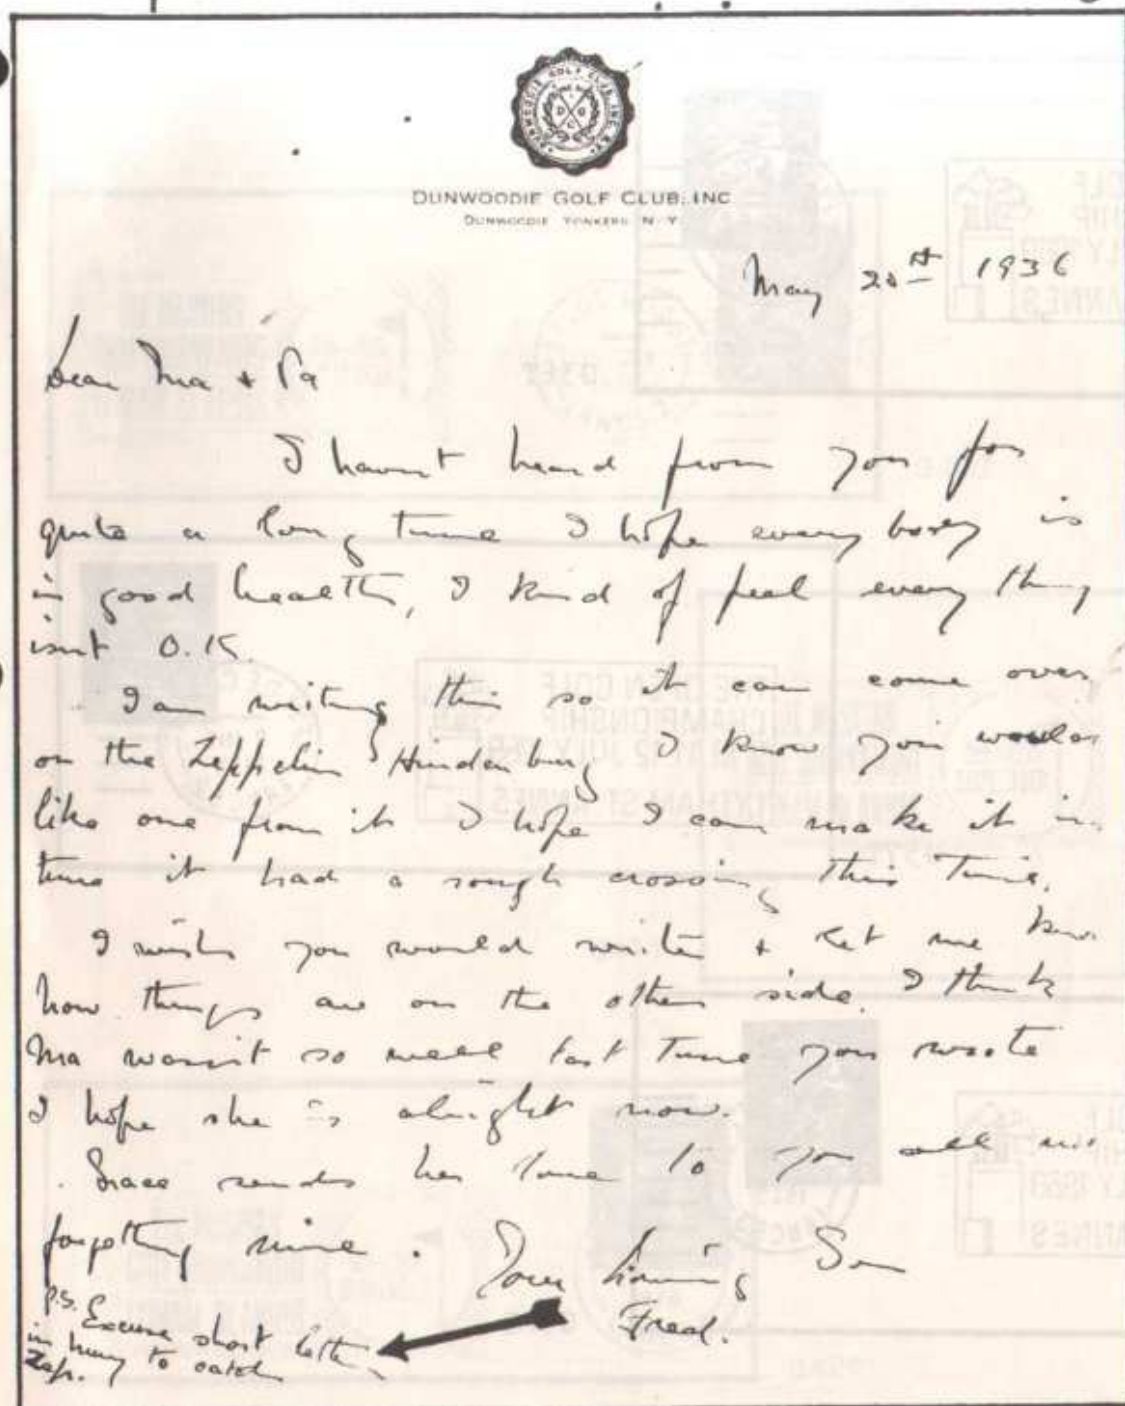 DUNWOODIE GOLF CLUB, INC. N.Y.
D G C
DUNWOODIE GOLF CLUB, INC
DUNWOODIE YONKERS N Y
May 20th 1936
Dear Ma + Pa
I havnt heard from you for
quite a long time I hope every body is
in good health, I kind of feel every thing
isnt O.K.
I am writing this so it can come over
on the Zeppelin Hindenburg I know you would
like one from it I hope I can make it in
time it had a rough crossing this time.
I wish you would write + let me know
how things are on the other side. I think
Ma wasnt so well last time you wrote
I hope she is alright now.
Grace sends her love to you all not
forgetting mine. Your loving Son
Fred.
P.S. Excuse short letter
in hurry to catch
Zep.